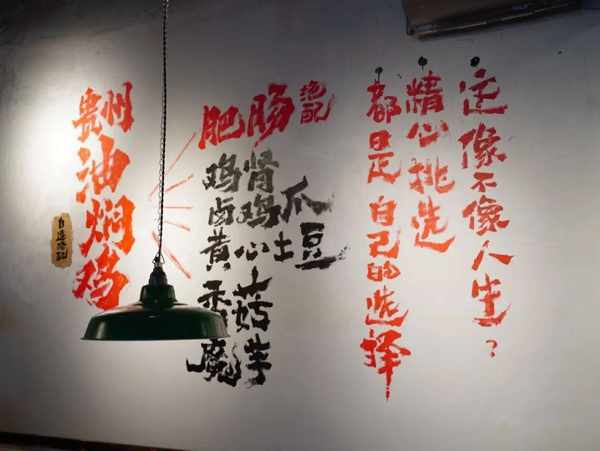 贵州
油焖鸡
肥肠
绝配
鸡肾
卤鸡爪
黄心土豆
香菇
魔芋
这像不像人生？
精心挑选
都是自己的选择！